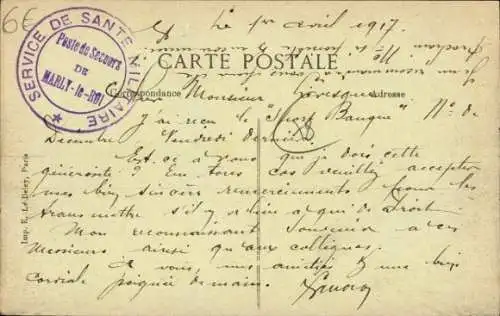 6€
Le 1er avril 1917.
SERVICE DE SANTÉ MILITAIRE
Poste de Secours
DE
MARLY-le-ROI
CARTE POSTALE
Correspondance
Adresse
Monsieur
J'ai reçu le "Sport Banque" No de
Décembre Vendredi dernier.
Est-ce à vous que je dois cette
générosité? En tous cas veuillez accepter
mes bien sincères remerciements pour les
transmettre s'il y a lieu à qui de droit
Mon reconnaissant souvenir à ces
Messieurs ainsi qu'aux collègues.
A vous, mes amitiés & une bien
cordiale poignée de main.
Imp. E. Le Deley, Paris